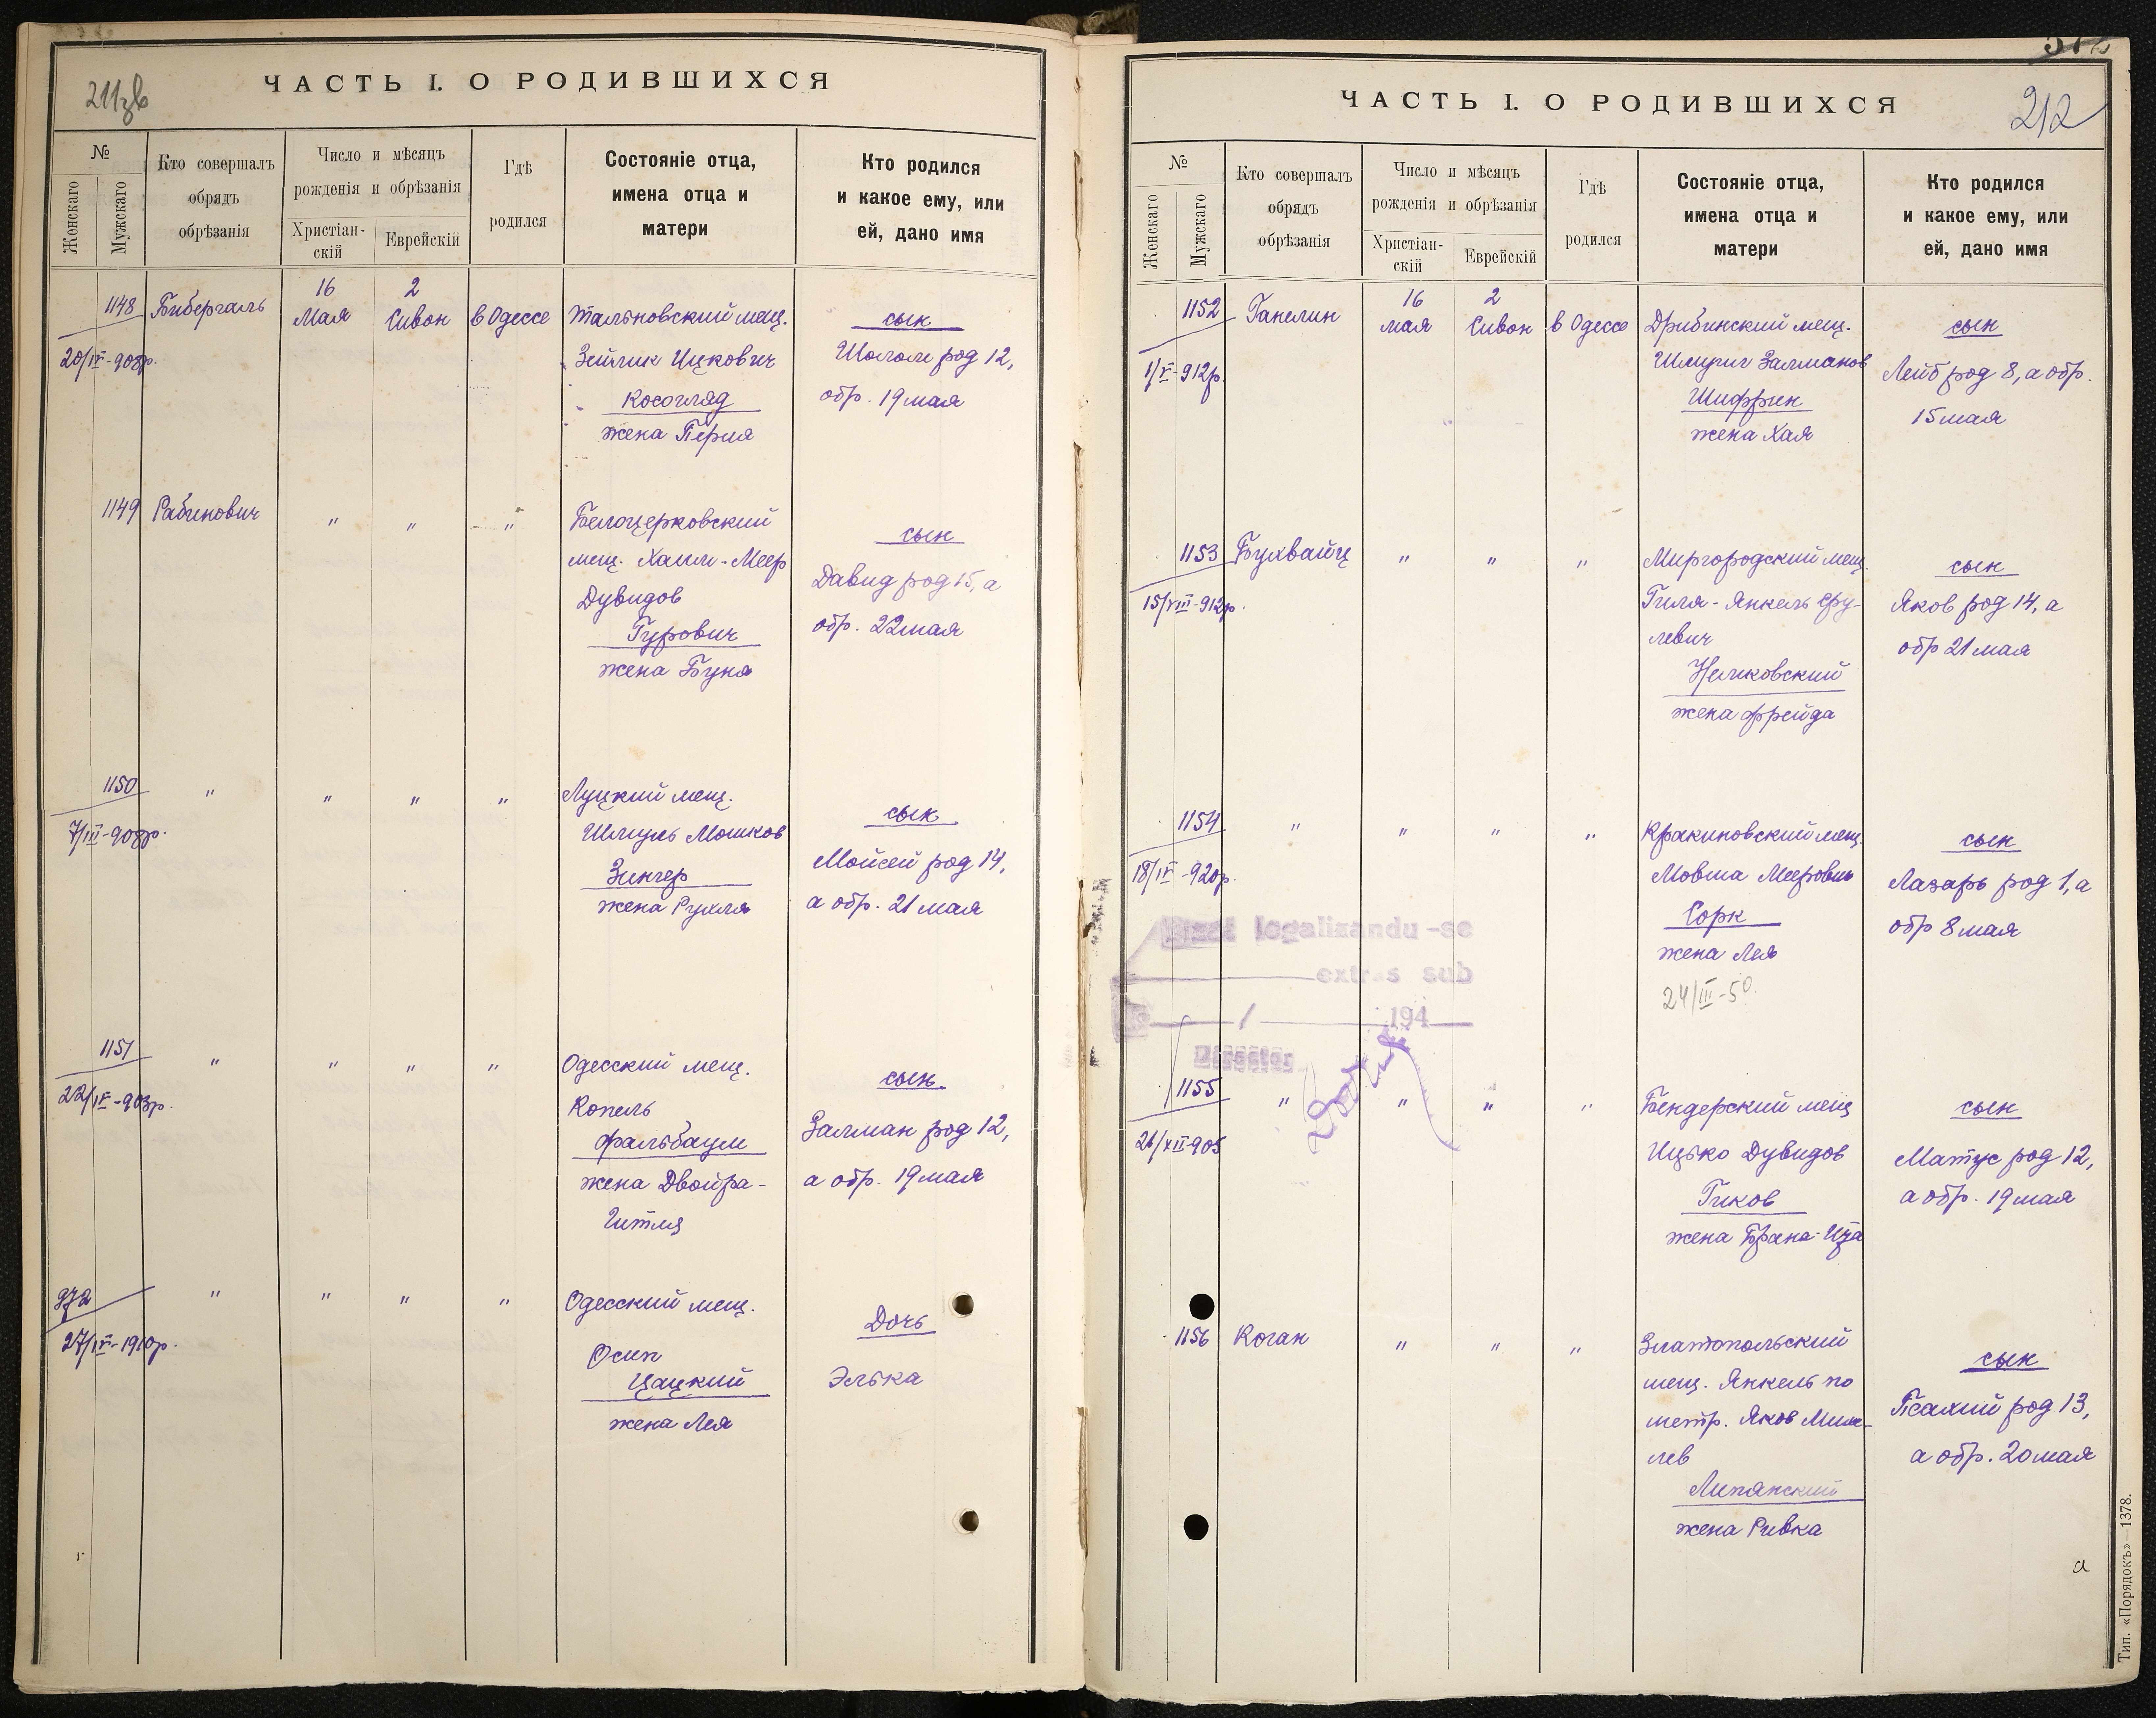 211зв
ЧАСТЬ I. О РОДИВШИХСЯ
№
Женскаго
Мужскаго
Кто совершалъ
обрядъ
обрѣзанія
Число и мѣсяцъ
рожденія и обрѣзанія
Христіан-
скій
Еврейскій
Гдѣ
родился
Состояніе отца,
имена отца и
матери
Кто родился
и какое ему, или
ей, дано имя
1148 Бибергаль 16 Мая 2 Сивон в Одессе
20/IV-908р.
Тальновский мещ.
Зейлик Ицкович
Косогляд
жена Перля
сын
Шолом род 12,
обр. 19 мая
1149 Рабинович " " "
Белоцерковский
мещ. Хаим-Меер
Дувидов
Гурович
жена Буня
сын
Давид род 15, а
обр. 22 мая
1150 " " " "
7/III-908р.
Луцкий мещ.
Шмуль Мошков
Зингер
жена Рухля
сын
Мойсей род 14,
а обр. 21 мая
1151 " " " "
22/IV-903р.
Одесский мещ.
Копель
Фальбаум
жена Двойра-
Гитля
сын
Залман род 12,
а обр. 19 мая
972 " " " "
27/IV-1910р.
Одесский мещ.
Осип
Цацкий
жена Лея
Дочь
Элька
212
ЧАСТЬ I. О РОДИВШИХСЯ
№
Женскаго
Мужскаго
Кто совершалъ
обрядъ
обрѣзанія
Число и мѣсяцъ
рожденія и обрѣзанія
Христіан-
скій
Еврейскій
Гдѣ
родился
Состояніе отца,
имена отца и
матери
Кто родился
и какое ему, или
ей, дано имя
1152 Ганелин 16 мая 2 Сивон в Одессе
1/V-912р.
Дрибинский мещ.
Шмуил Залманов
Шифрин
жена Хая
сын
Лейб род 8, а обр.
15 мая
1153 Бухвайц " " "
15/VIII-912р.
Миргородский мещ.
Гиля-Янкель Сру-
левич
жена Фрейда
сын
Яков род 14, а
обр 21 мая
1154 " " " "
18/IV-920р.
Кракиновский мещ.
Мовша Меерович
Сорк
жена Лея
24/III-50.
сын
Лазарь род 1, а
обр 8 мая
legalizandu-se
extras sub
/ 194
Director
1155 " " " "
26/XII-905
Бендерский мещ
Ицько Дувидов
Гиков
жена Брана-Иза
сын
Матус род 12,
а обр. 19 мая
1156 Коган " " "
Златопольский
мещ. Янкель по
метр. Яков Миха-
лев
Липянский
жена Ривка
сын
Псахий род 13,
а обр. 20 мая
а
Тип. «Порядокъ»—1378.